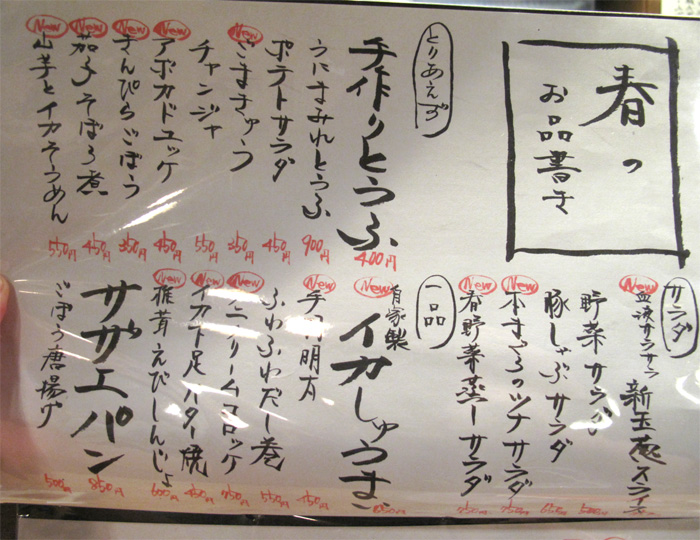 春の
お品書き
とりあえず
手作りとうふ 400円
うにまみれとうふ 900円
ポテトサラダ 450円
New ごまきゅう 350円
チャンジャ 550円
New アボカドユッケ 450円
New きんぴらごぼう 350円
New 茄子そぼろ煮 450円
New 山芋とイカそうめん 550円
サラダ
New 血液サラサラ 新玉葱スライス
野菜サラダ
豚しゃぶサラダ
New 本まぐろのツナサラダ
New 春野菜蒸しサラダ
一品
New 自家製 イカしゅうまい
New
ふわふわだし巻 550円
New
New イカゲソ足バター焼
New 椎茸えびしんじょ 600円
サザエパン 850円
ごぼう唐揚げ 500円